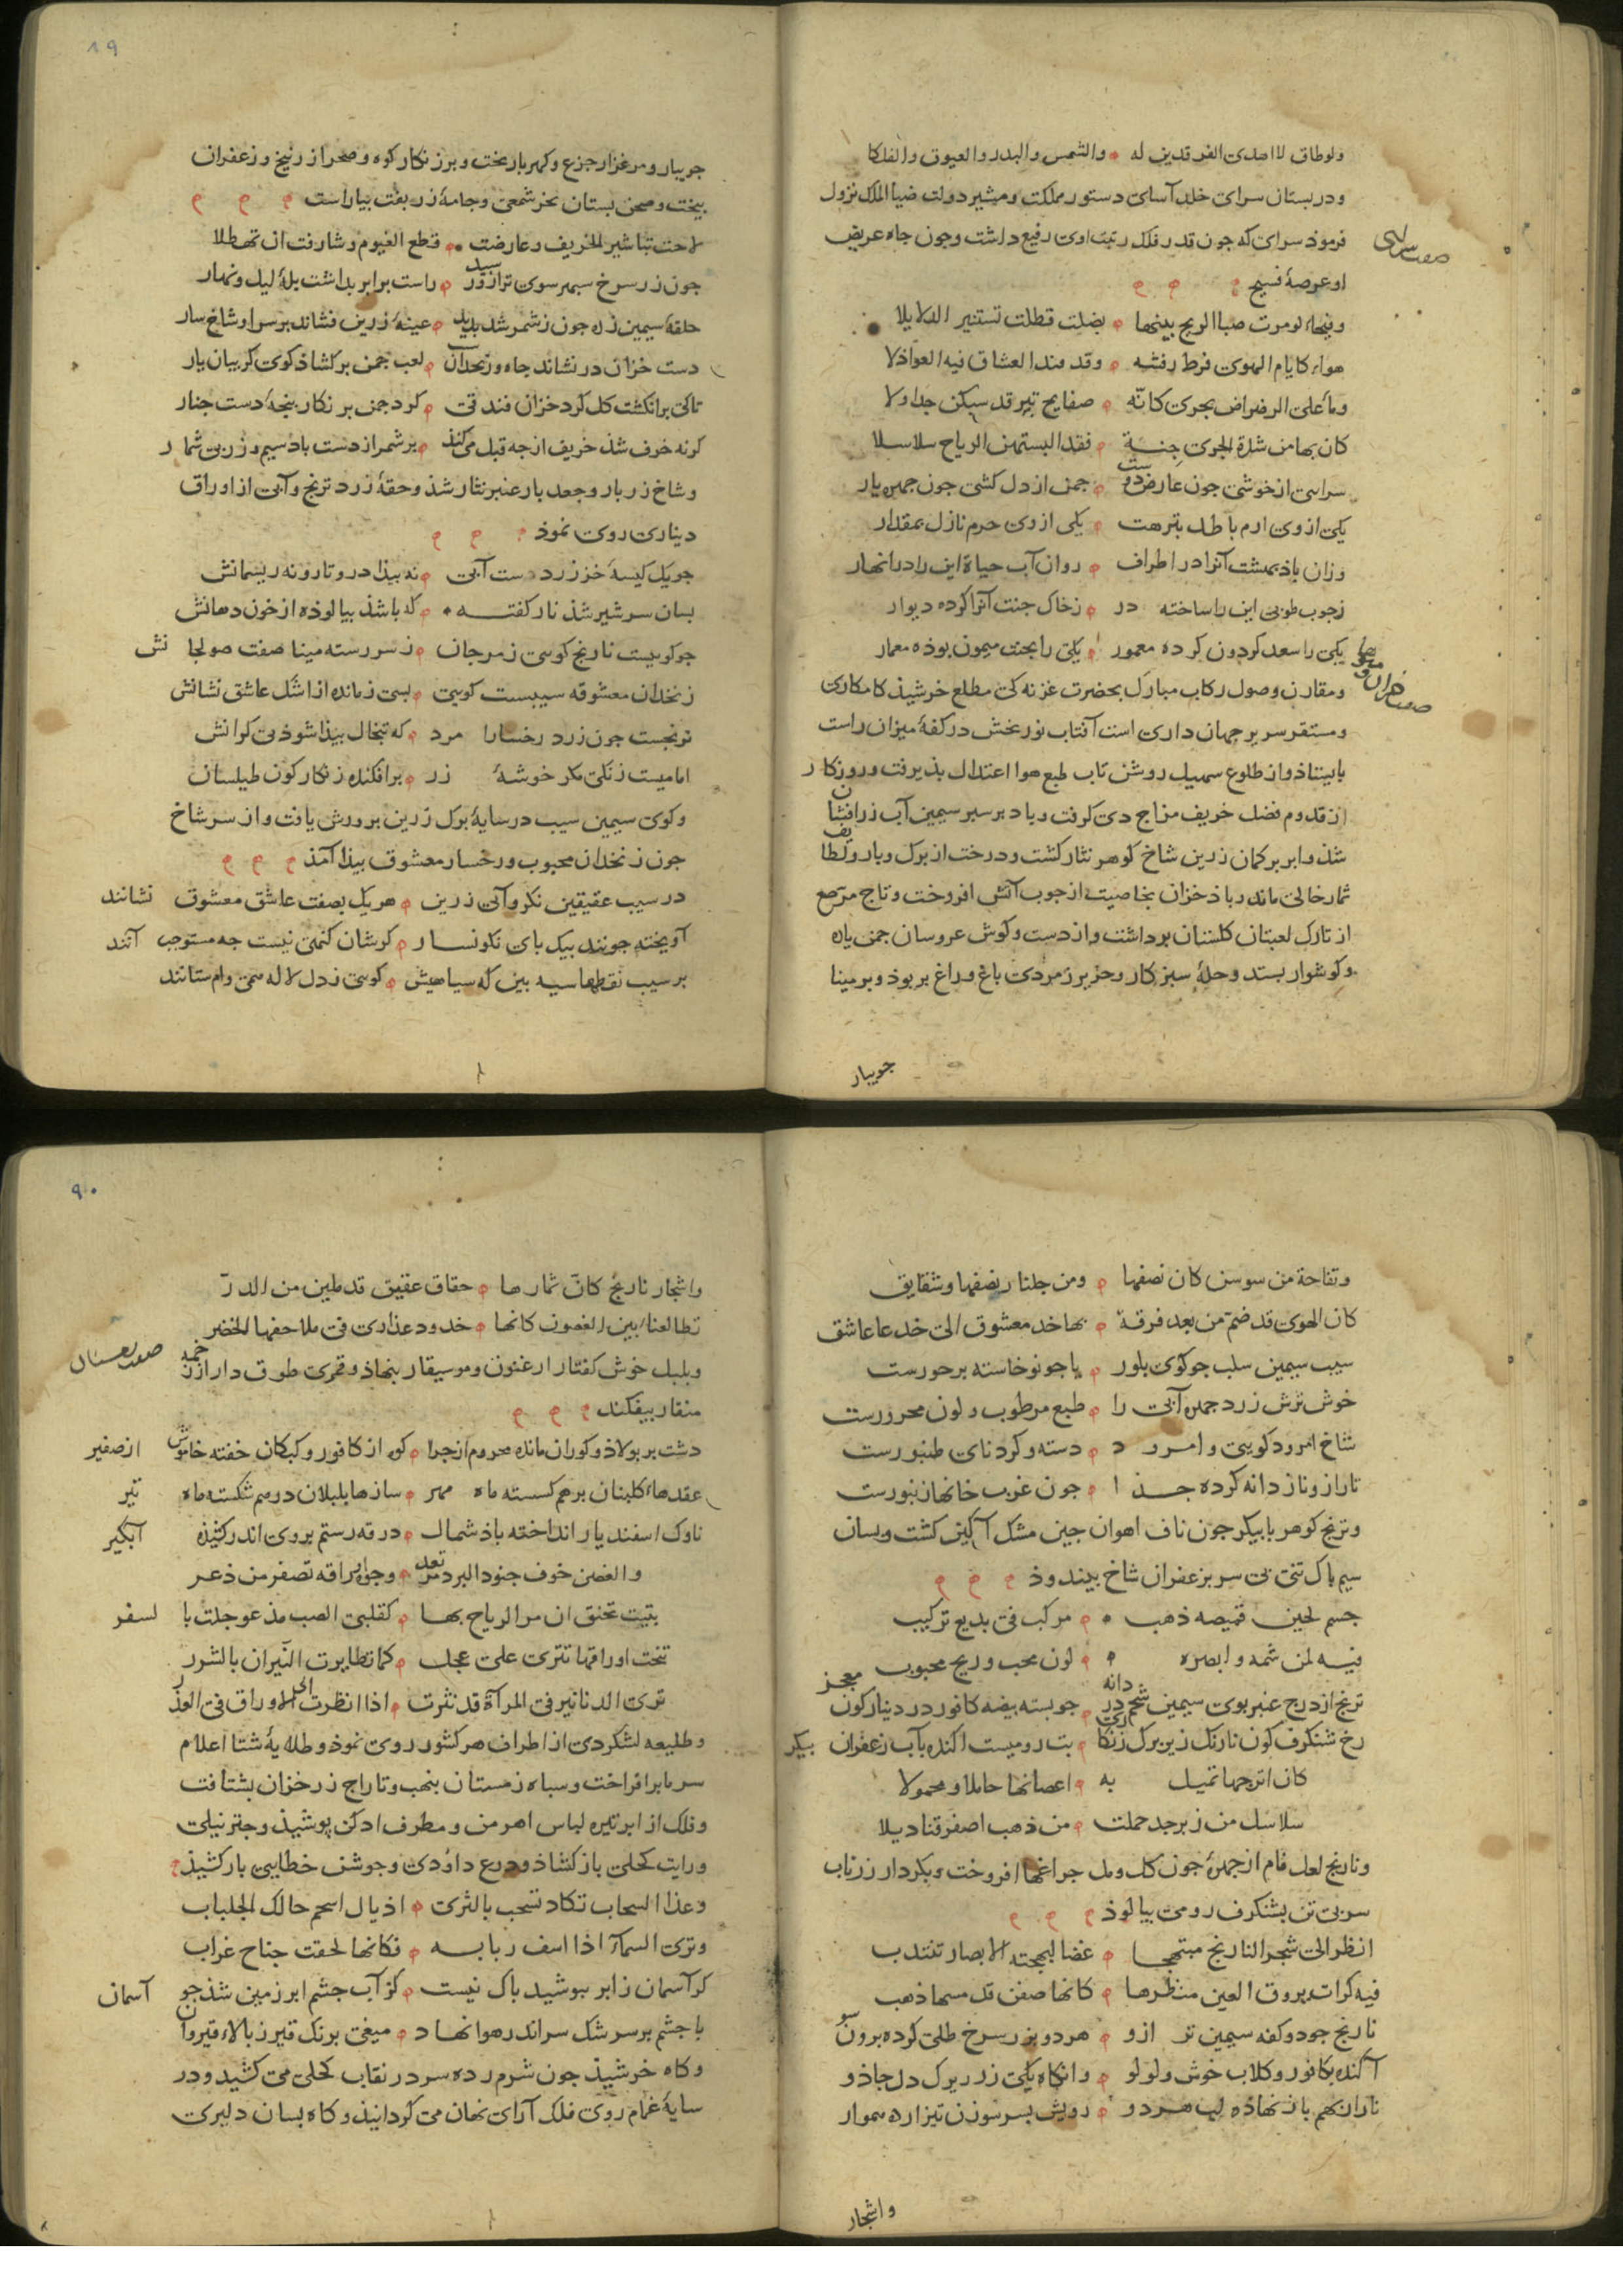 ولوطاق لااهدی الفرقدین له والشمس والبدر والعیوق والفلکا
ودر بستان سرای خلد آسای دستور مملکت ومشیر دولت ضیا الملک نزول
فرموذ سرای که جون قدر فلک رتبت اوی رفیع داشت وجون جاه عریض
او عرصهٔ فسیح
صفت سرای
وفیحاء لومرت صبا الریح بینها بضلت فظلت تستنیر الدلایلا
هواء کایام الهوی فرط رقته وقد فند العشاق فیه العواذلا
وماء علی الرضراض یجری کانه صفایح تبر قد سبکن جداولا
کان بها من شدة الجری جنة فقد البستهن الریاح سلاسلا
سرایی از خوشی جون عارض دوست جمن از دل کشی جون جهره یار
یکی از وی ارم باطل بنزهت یکی از وی حرم نازل بمقدار
وزان باذ بهشت آنرا در اطراف روان آب حیاة این را در انهار
زجوب طوبی این را ساخته در زخاک جنت آنرا کرده دیوار
یکی را سعد کردون کرده معمور یکی را بخت میمون بوذه معمار
ومقارن وصول رکاب مبارک بحضرت غزنه کی مطلع خرشیذ کامکاری
صفت خزان و میوها
ومستقر سریر جهان داری است آفتاب نور بخش در کفهٔ میزان راست
بایستاذ واز طلوع سهیل روشن تاب طبع هوا اعتدال بذیرفت وروزکار
از قدوم فصل خریف مزاج دی کرفت وباد برسبر سیمین آب زرافشان
شذ وابر بر کمان زرین شاخ کوهر نثار کشت ودرخت از برک وبار ولطایف
ثمار خالی ماند وباذ خزان بخاصیت از جوب آتش افروخت وتاج مرصع
از تارک لعبتان کلستان برداشت واز دست وکوش عروسان جمن یاره
وکوشوار بستد وحلهٔ سبز کار وحریر زمردی باغ وراغ بربوذ وبر مینا
جویبار
۸۹
جویبار ومرغزار جزع وکهربا ریخت وبر زنکار کوه وصحرا زرنیخ وزعفران
بیخت وصحن بستان بخز شمعی وجامهٔ زربفت بیاراست
لاحت تباشیر الخریف وعارضت قطع الغیوم وشارفت ان تهطلا
جون زر سرخ سبهر سوی ترازو رسید راست برابر بداشت بلهٔ لیل ونهار
حلقهٔ سیمین زره جون زشمر شد بدید عیبهٔ زرین فشاند بر سر او شاخسار
دست خزان در نشاند جاه زنخدان لعب جمن برکشاذ کوی کریبان یار
تاکی برانکشت کل کرد خزان فندقی کرد جمن بر نکار بنجهٔ دست جنار
کرنه خرف شذ خریف از جه قبل می کنذ بر شمر از دست باد سیم وزر بی شمار
وشاخ زربار وجعد بار عنبر نثار شذ وحقهٔ زرد ترنج وآبی از اوراق
دیناری روی نموذ
جو یک کیسهٔ خز زردست آبی نه بیذا درو تار ونه ریسمانش
بسان سر شیر شذ نار کفته که باشذ بیالوذه از خون دهانش
جو کوییست نارنج کویی زمرجان زسر رسته مینا صفت صولجانش
زنخدان معشوقه سیبست کویی بسی زمانده از اشک عاشق نشانش
ترنجست جون زرد رخسارا مرد که تبخال بیذا شوذ بی کرانش
امامیست زنکی مکر خوشهٔ زر برافکنده زنکارکون طیلسان
وکوی سیمین سیب در سایهٔ برک زرین برورش یافت واز سر شاخ
جون زنخدان محبوب ورخسار معشوق بیذا آمذ
در سیب عقیقین نکر وآبی زرین هریک بصفت عاشق معشوق نشانند
آویخته جونند بیک بای نکونسار کر شان کنهی نیست جه مستوجب آنند
بر سیب نقطها سیه بین که سیاهیش کویی زدل لاله همی وام ستانند
وتفاحة من سوسن کان نصفها ومن جلنار نصفها وشقایق
کان الهوی قد ضم من بعد فرقة بها خد معشوق الی خد عاشق
سیب سیمین سلب جو کوی بلور یا جو نوخاسته بر حورست
خوش ترش زرد جهره آبی را طبع مرطوب ولون محرورست
شاخ امرود کویی وامرود دسته وکرد نای طنبورست
تا راز وناز دانه کرده جذا جون غرب خانهاز نبورست
وترنج کوهر بابیکر جون ناف اهوان جین مشک آکین کشت وبسان
سیم باک تنی بی سر بزعفران شاخ بیندوذ
جسم لجین قمیصه ذهب مرکب فی بدیع ترکیب
فیه لمن شمه وابصره لون محب وریح محبوب
ترنج از درج عنبر بوی سیمین شحم در دانه جو بسته بیضه کافور در دینارکون معجز
رخ شنکرف کون نارنک زین برک زنکاری بت رومیست اکنده بآب زعفران بیکر
کان اترجها تمیل به اغصانها حاملا ومحمولا
سلاسل من زبرجد حملت من ذهب اصفر قنادیلا
ونارنج لعل فام از جهره جون کل ومل جراغها افروخت وبکردار زرناب
سر بی تن بشنکرف رومی بیالوذ
انظر الی شجر النارنج مبتهجا غضا لبهجته الابصار تنتدب
فیه کرات یروق العین منظرها کانها صفن قد مسها ذهب
نارنج جو دو کفه سیمین ترازو هر دو بزر سرخ طلی کرده برون سو
آکنده بکافور وکلاب خوش ولولو وانکاه یکی زر دبرک دل جاذو
ناران بهم باز نهاذه لب هر دو رویش بسر سوزن تیز ارده هموار
واشجار
۹۰
واشجار نارنج کان ثمارها حقاق عقیق قد ملین من الدر
تطالعنا بین الغصون کانها خدود عذاری فی ملاحفها الخضر
وبلبل خوش کفتار ارغنون وموسیقار بنهاذ وقمری طوق دار از زخمه
منقار بیفکند
دشت بر بولاذ وکوران مانده محروم از جرا کوه از کافور وکبکان خفته خاموش از صفیر
عقدهاء کلبنان برهم کسسته ماه مهر سازها بلبلان درهم شکسته ماه تیر
ناوک اسفندیار انداخته باذ شمال درقه رستم بروی اندر کشیذه آبکیر
والغصن خوف جنود البرد مرتعد وجوه اوراقه تصفر من ذعر
یتیت تخنق ان مر الریاح بها کقلبی الصب مذ عوجلت بالسفر
تنحت اوراقها تتری علی عجل کما تطایرت النیران بالشرر
تری الدنانیر فی المرآة قد نثرت اذا نظرت الی الاوراق فی الغدر
وطلیعه لشکر دی از اطراف هر کشور روی نموذ وطلایهٔ شتا اعلام
سرما برافراخت وسباه زمستان بنهب وتاراج زر خزان بشتافت
وفلک از ابر تیره لباس اهرمن ومطرف ادکن بوشیذ وجتر نیلی
ورایت کحلی باز کشاذ ودرع داوذی وجوشن خطایی بار کشیذ
وغدا السحاب تکاد تسحب بالثری اذیال اسحم حالک الجلباب
وتری السماء اذا اسف ربابه فکانها لحقت جناح غراب
کر آسمان ز ابر ببوشید باک نیست کز آب جشم ابر زمین شذ جو آسمان
با جشم برسرشک سراندر هوا نهاد میغی برنک قیر ز بالاء قیروان
وکاه خرشیذ جون شرم زده سر در نقاب کحلی می کشید ودر
سایهٔ غمام روی فلک آرای نهان می کردانیذ وکاه بسان دلبری